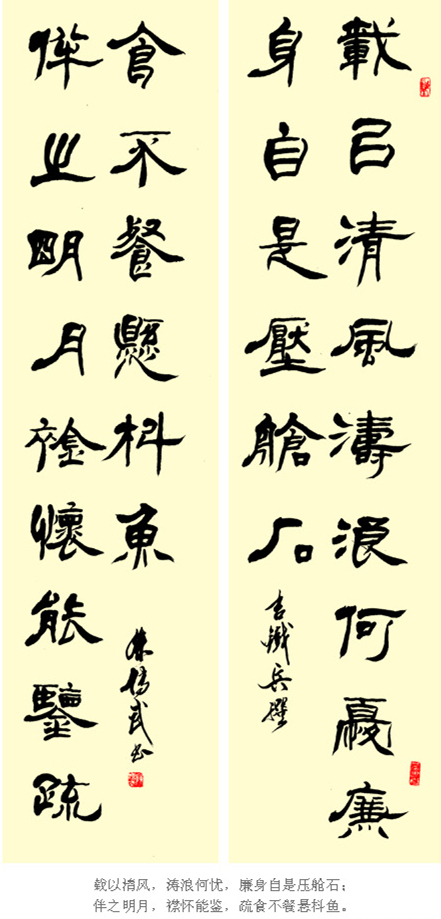 載以清風濤浪何憂廉
身自是壓艙石
吉鐵兵撰
伴之明月襟懷能鑒疏
食不餐懸枓魚
载以清风，涛浪何忧，廉身自是压舱石；
伴之明月，襟怀能鉴，疏食不餐悬枓鱼。